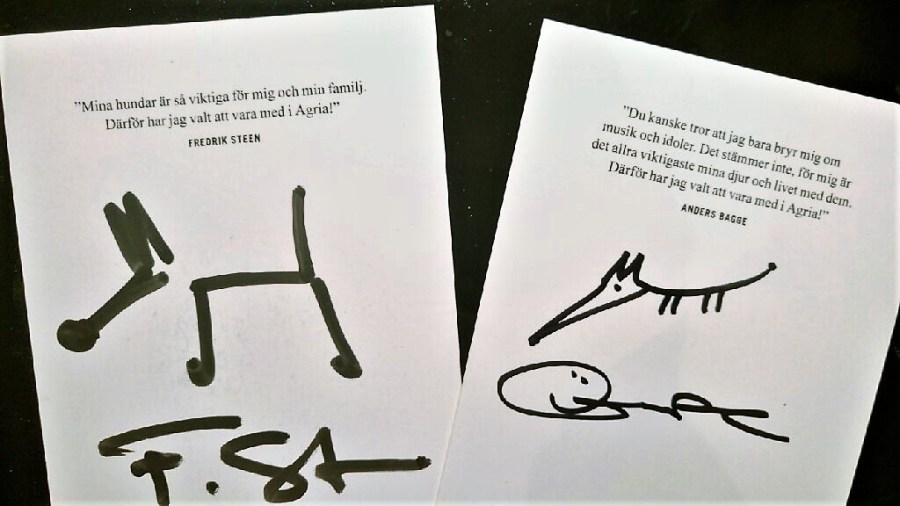 ”Mina hundar är så viktiga för mig och min familj.
Därför har jag valt att vara med i Agria!”
FREDRIK STEEN
F. St
”Du kanske tror att jag bara bryr mig om
musik och idoler. Det stämmer inte, för mig är
det allra viktigaste mina djur och livet med dem.
Därför har jag valt att vara med i Agria!”
ANDERS BAGGE